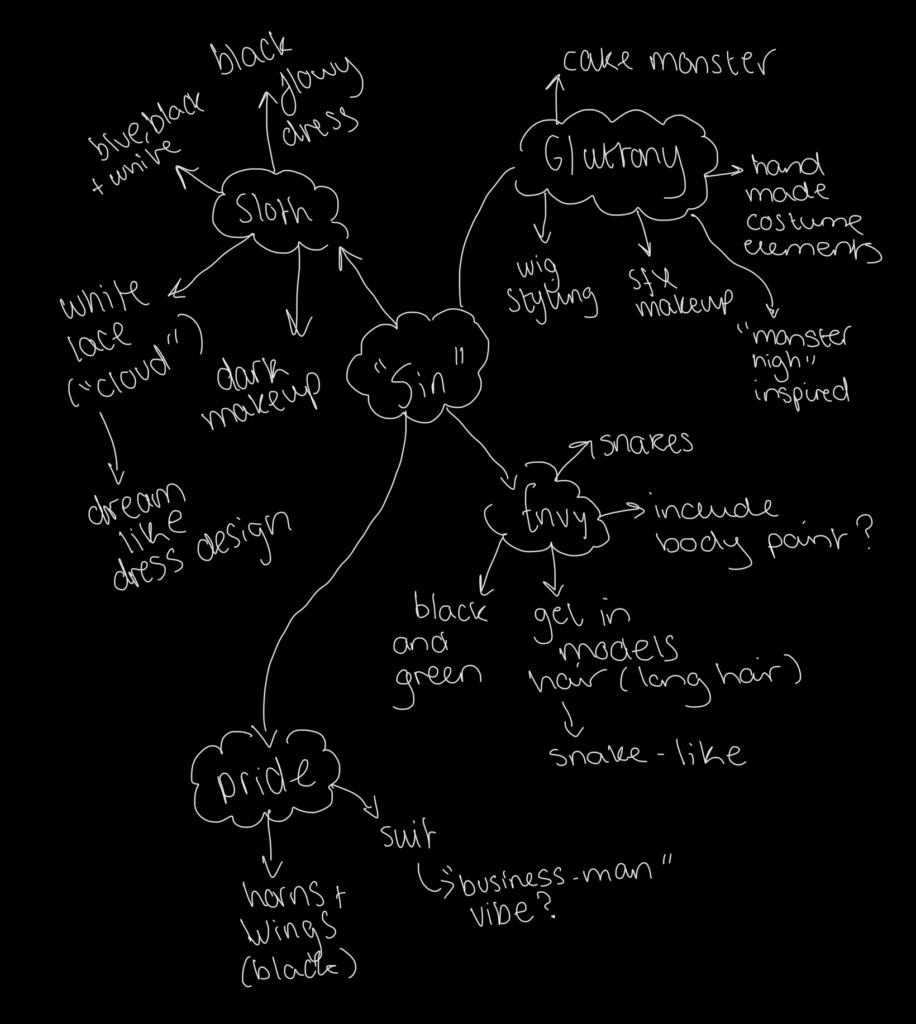 black
flowy
dress
blue, black
+ white
Sloth
white
lace
("cloud")
dream
like
dress design
dark
makeup
cake monster
Gluttony
hand
made
costume
elements
wig
styling
sfx
makeup
"monster
high"
inspired
"Sin"
Envy
snakes
include
body paint?
black
and
green
gel in
models
hair (long hair)
snake-like
pride
horns +
wings
(black)
suit
"business-man"
vibe?